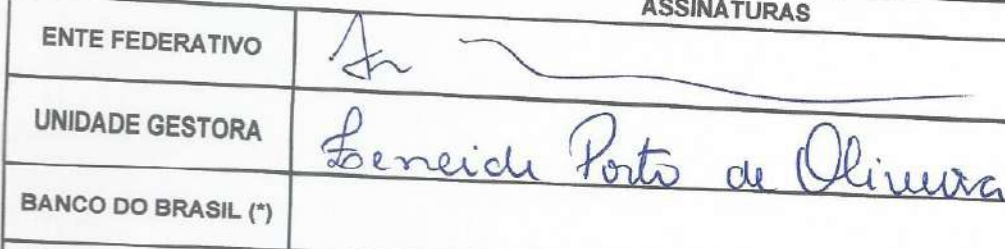 ASSINATURAS
ENTE FEDERATIVO
UNIDADE GESTORA Zeneide Porto de Oliveira
BANCO DO BRASIL (*)